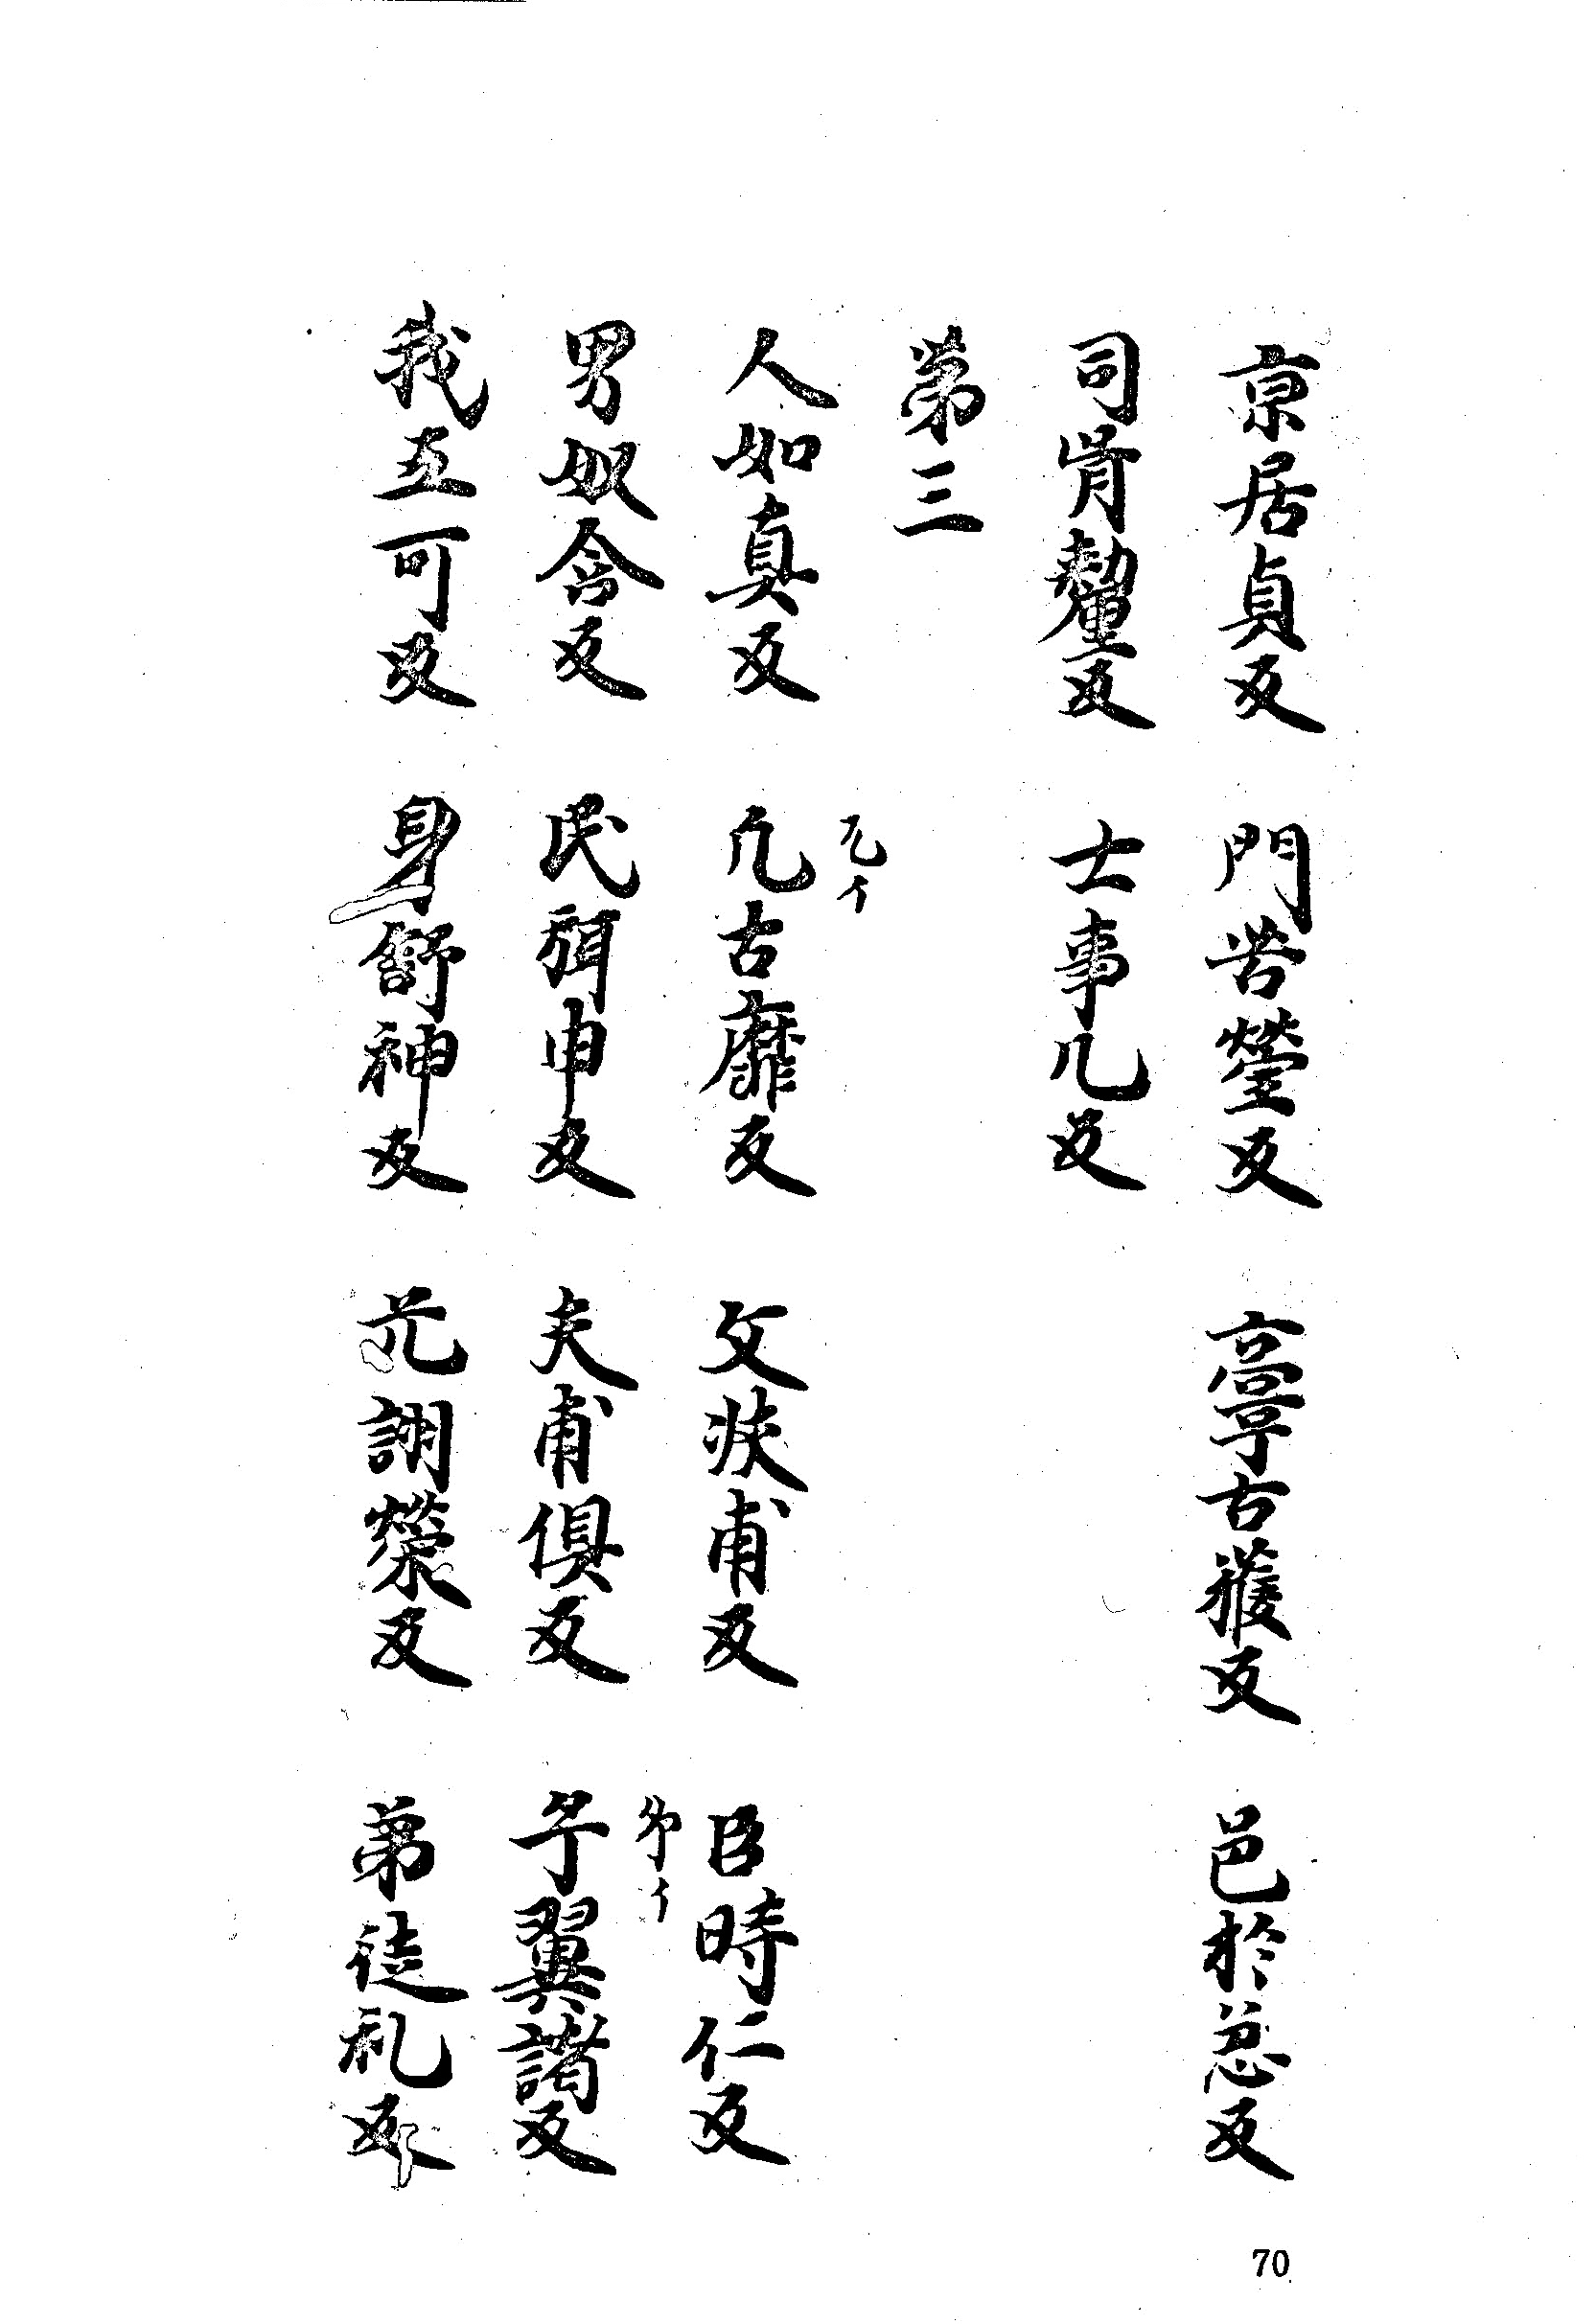 京居貞反　門苦瑩反　𩫏古獲反　邑於忩反
司胥釐反　士事几反
第三
人如真反　几古靡反　父扶甫反　臣時仁反
男奴含反　民弭申反　夫甫俱反　予翼諸反
我五可反　身舒神反　兄詡榮反　弟徒礼反
70